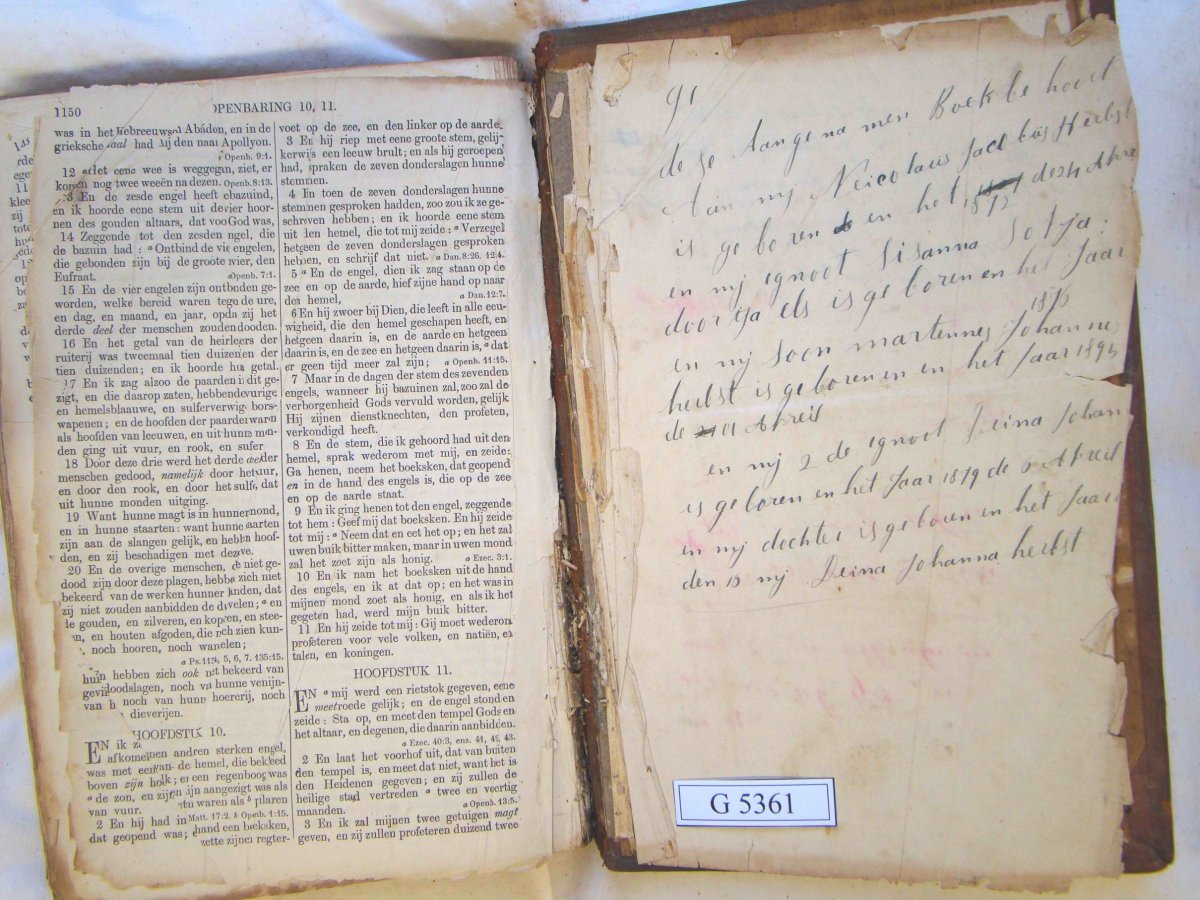 1150
OPENBARING 10, 11.
was in het Hebreeuwsch Abáddon, en in de
grieksche taal had hij den naam Apollyon.
Openb. 9:1.
12 Het eene wee is weggegaan, ziet, er
komen nog twee weeën na dezen. Openb. 8:13.
13 En de zesde engel heeft gebazuind,
en ik hoorde eene stem uit de vier hoor-
nen des gouden altaars, dat voor God was,
14 Zeggende tot den zesden engel, die
de bazuin had: a Ontbind de vier engelen,
die gebonden zijn bij de groote rivier, den
Eufraat. a Openb. 7:1.
15 En de vier engelen zijn ontbonden ge-
worden, welke bereid waren tegen de ure,
en dag, en maand, en jaar, opdat zij het
derde deel der menschen zouden dooden.
16 En het getal van de heirlegers der
ruiterij was tweemaal tien duizenden der
tien duizenden; en ik hoorde hun getal.
17 En ik zag alzoo de paarden in dit ge-
zigt, en die daarop zaten, hebbende vurige
en hemelsblaauwe, en sulferverwige bors-
wapenen; en de hoofden der paarden waren
als hoofden van leeuwen, en uit hunne mon-
den ging uit vuur, en rook, en sulfer
18 Door deze drie werd het derde deel der
menschen gedood, namelijk door het vuur,
en door den rook, en door het sulfer, dat
uit hunne monden uitging.
19 Want hunne magt is in hunnen mond,
en in hunne staarten: want hunne staarten
zijn aan de slangen gelijk, en hebben hoof-
den, en zij beschadigen met dezelve.
20 En de overige menschen, die niet ge-
dood zijn door deze plagen, hebben zich niet
bekeerd van de werken hunner handen, dat
zij niet zouden aanbidden de duivelen; a en
de gouden, en zilveren, en koperen, en stee-
en, en houten afgoden, die noch zien kun-
noch hooren, noch wandelen;
a Ps. 115:4, 5, 6, 7. 135:15.
hebben zich ook niet bekeerd van
doodslagen, noch van hunne venijn-
van hunne hoererij, noch
dieverijen.
HOOFDSTUK 10.
EN ik
afkomenen andren sterken engel,
was met eene van de hemel, die bekleed
boven zijn hoofd; er een regenboog was
a de zon, en zijn aangezigt was als
van vuur. waren als b pilaren
Matt. 17:2. b Openb. 1:15.
2 En hij had in hand een boeksken,
dat geopend was; zette zijnen regter-
voet op de zee, en den linker op de aarde.
3 En hij riep met eene groote stem, gelij-
kerwijs een leeuw brult; en als hij geroepen
had, spraken de zeven donderslagen hunne
stemmen.
4 En toen de zeven donderslagen hunne
stemmen gesproken hadden, zoo zou ik ze ge-
schreven hebben; en ik hoorde eene stem
uit den hemel, die tot mij zeide: a Verzegel
hetgeen de zeven donderslagen gesproken
hebben, en schrijf dat niet. a Dan. 8:26. 12:4.
5 a En de engel, dien ik zag staan op de
zee en op de aarde, hief zijne hand op naar
den hemel, a Dan. 12:7.
6 En hij zwoer bij Dien, die leeft in alle eeu-
wigheid, die den hemel geschapen heeft, en
hetgeen daarin is, en de aarde en hetgeen
daarin is, en de zee en hetgeen daarin is, a dat
er geen tijd meer zal zijn; a Openb. 11:15.
7 Maar in de dagen der stem des zevenden
engels, wanneer hij bazuinen zal, zoo zal de
verborgenheid Gods vervuld worden, gelijk
Hij zijnen dienstknechten, den profeten,
verkondigd heeft.
8 En de stem, die ik gehoord had uit den
hemel, sprak wederom met mij, en zeide:
Ga henen, neem het boeksken, dat geopend
en in de hand des engels is, die op de zee
en op de aarde staat.
9 En ik ging henen tot den engel, zeggende
tot hem: Geef mij dat boeksken. En hij zeide
tot mij: a Neem dat en eet het op; en het zal
uwen buik bitter maken, maar in uwen mond
zal het zoet zijn als honig. a Ezec. 3:1.
10 En ik nam het boeksken uit de hand
des engels, en ik at dat op; en het was in
mijnen mond zoet als honig, en als ik het
gegeten had, werd mijn buik bitter.
11 En hij zeide tot mij: Gij moet wederom
profeteren voor vele volken, en natiën, en
talen, en koningen.
HOOFDSTUK 11.
EN a mij werd een rietstok gegeven, eene
meetroede gelijk; en de engel stond en
zeide: Sta op, en meet den tempel Gods en
het altaar, en degenen, die daarin aanbidden.
a Ezec. 40:3, enz. 41, 42, 43.
2 En laat het voorhof uit, dat van buiten
den tempel is, en meet dat niet, want het is
den Heidenen gegeven; en zij zullen de
heilige stad vertreden a twee en veertig
maanden. a Openb. 13:5.
3 En ik zal mijnen twee getuigen magt
geven, en zij zullen profeteren duizend twee
de se Aangename men Boek be hoort
Aan mij Neicolaus Jacobus Herbst
is ge boren en het 1872 de 24 Abre
en mij egnoot Sisanna Sofja
is ge boren en het Jaar
1876
en mij Soon martennes Johannes
herbst is ge boren en en het Jaar 1894
de 01 Abreil
en mij 2 de egnoot Deina Johan
is ge boren en het Jaar 1879 de 2 Abreil
en mij dochter is ge boren en het Jaar
den 13 mij Deina Johanna herbst
G 5361